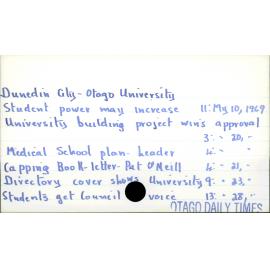 Dunedin City - Otago University
Student power may increase 11: My 10, 1969
University building project wins approval
3: " 20, "
Medical School plan - leader 4: " "
Capping Book - letter - Pat O'Neill 4: " 21, "
Directory cover shows University 9: " 23, "
Students get Council voice 13: " 28, "
OTAGO DAILY TIMES